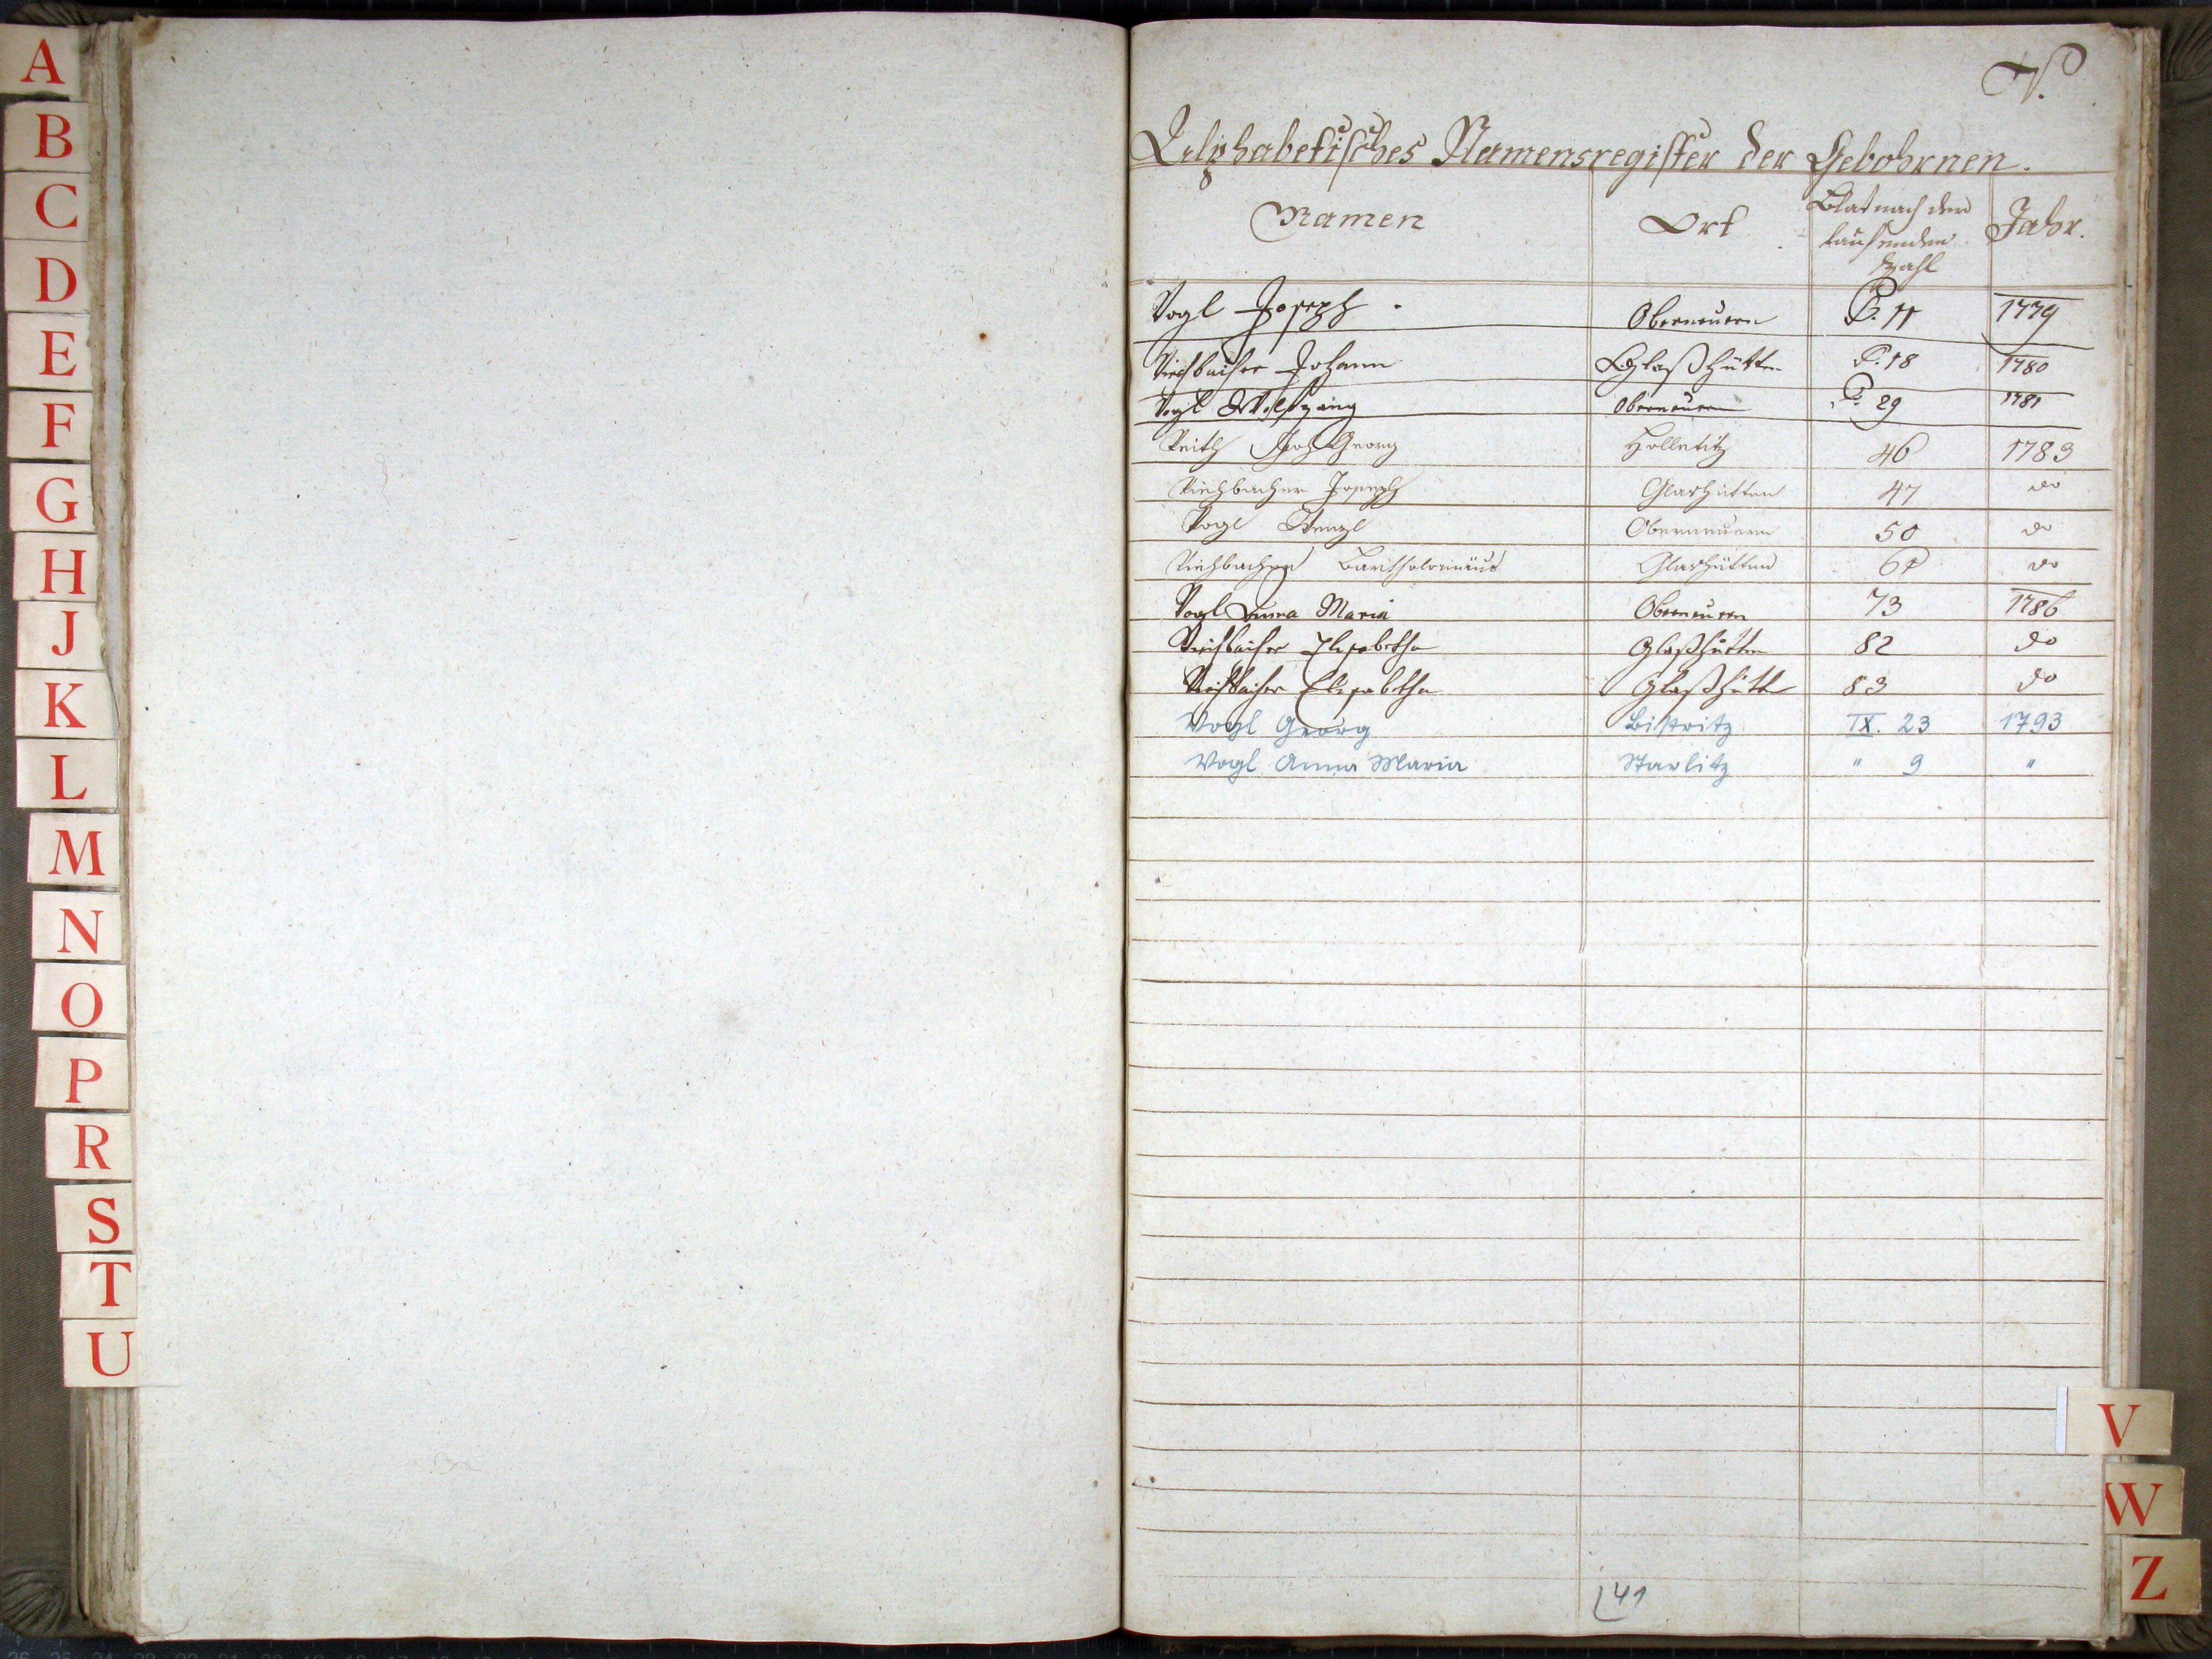 A
B
C
D
E
F
G
H
J
K
L
M
N
O
P
R
S
T
U
V.
Alphabetisches Namensregister der Gebohrnen.
Namen Ort Blat nach der laufenden Zahl Jahr.
Vogl Joseph Oberneuern P. 11 1779
Viehbacher Johann Glaßhütten P. 18 1780
Vogl Wolfgang Oberneuern P. 29 1781
Veith Joh Georg Holletitz 46 1783
Viehbacher Joseph Glashütten 47 do
Vogl Wenzl Oberneuern 50 do
Viehbacher Bartholomäus Glashütten do
Vogl Anna Maria Oberneuern 73 1786
Viehbacher Elisabetha Glaßhütten 82 do
Viehbacher Elisabetha Glaßhütte 83 do
Vogl Georg Bistritz IX. 23 1793
Vogl Anna Maria Starlitz " 9 "
41
V
W
Z